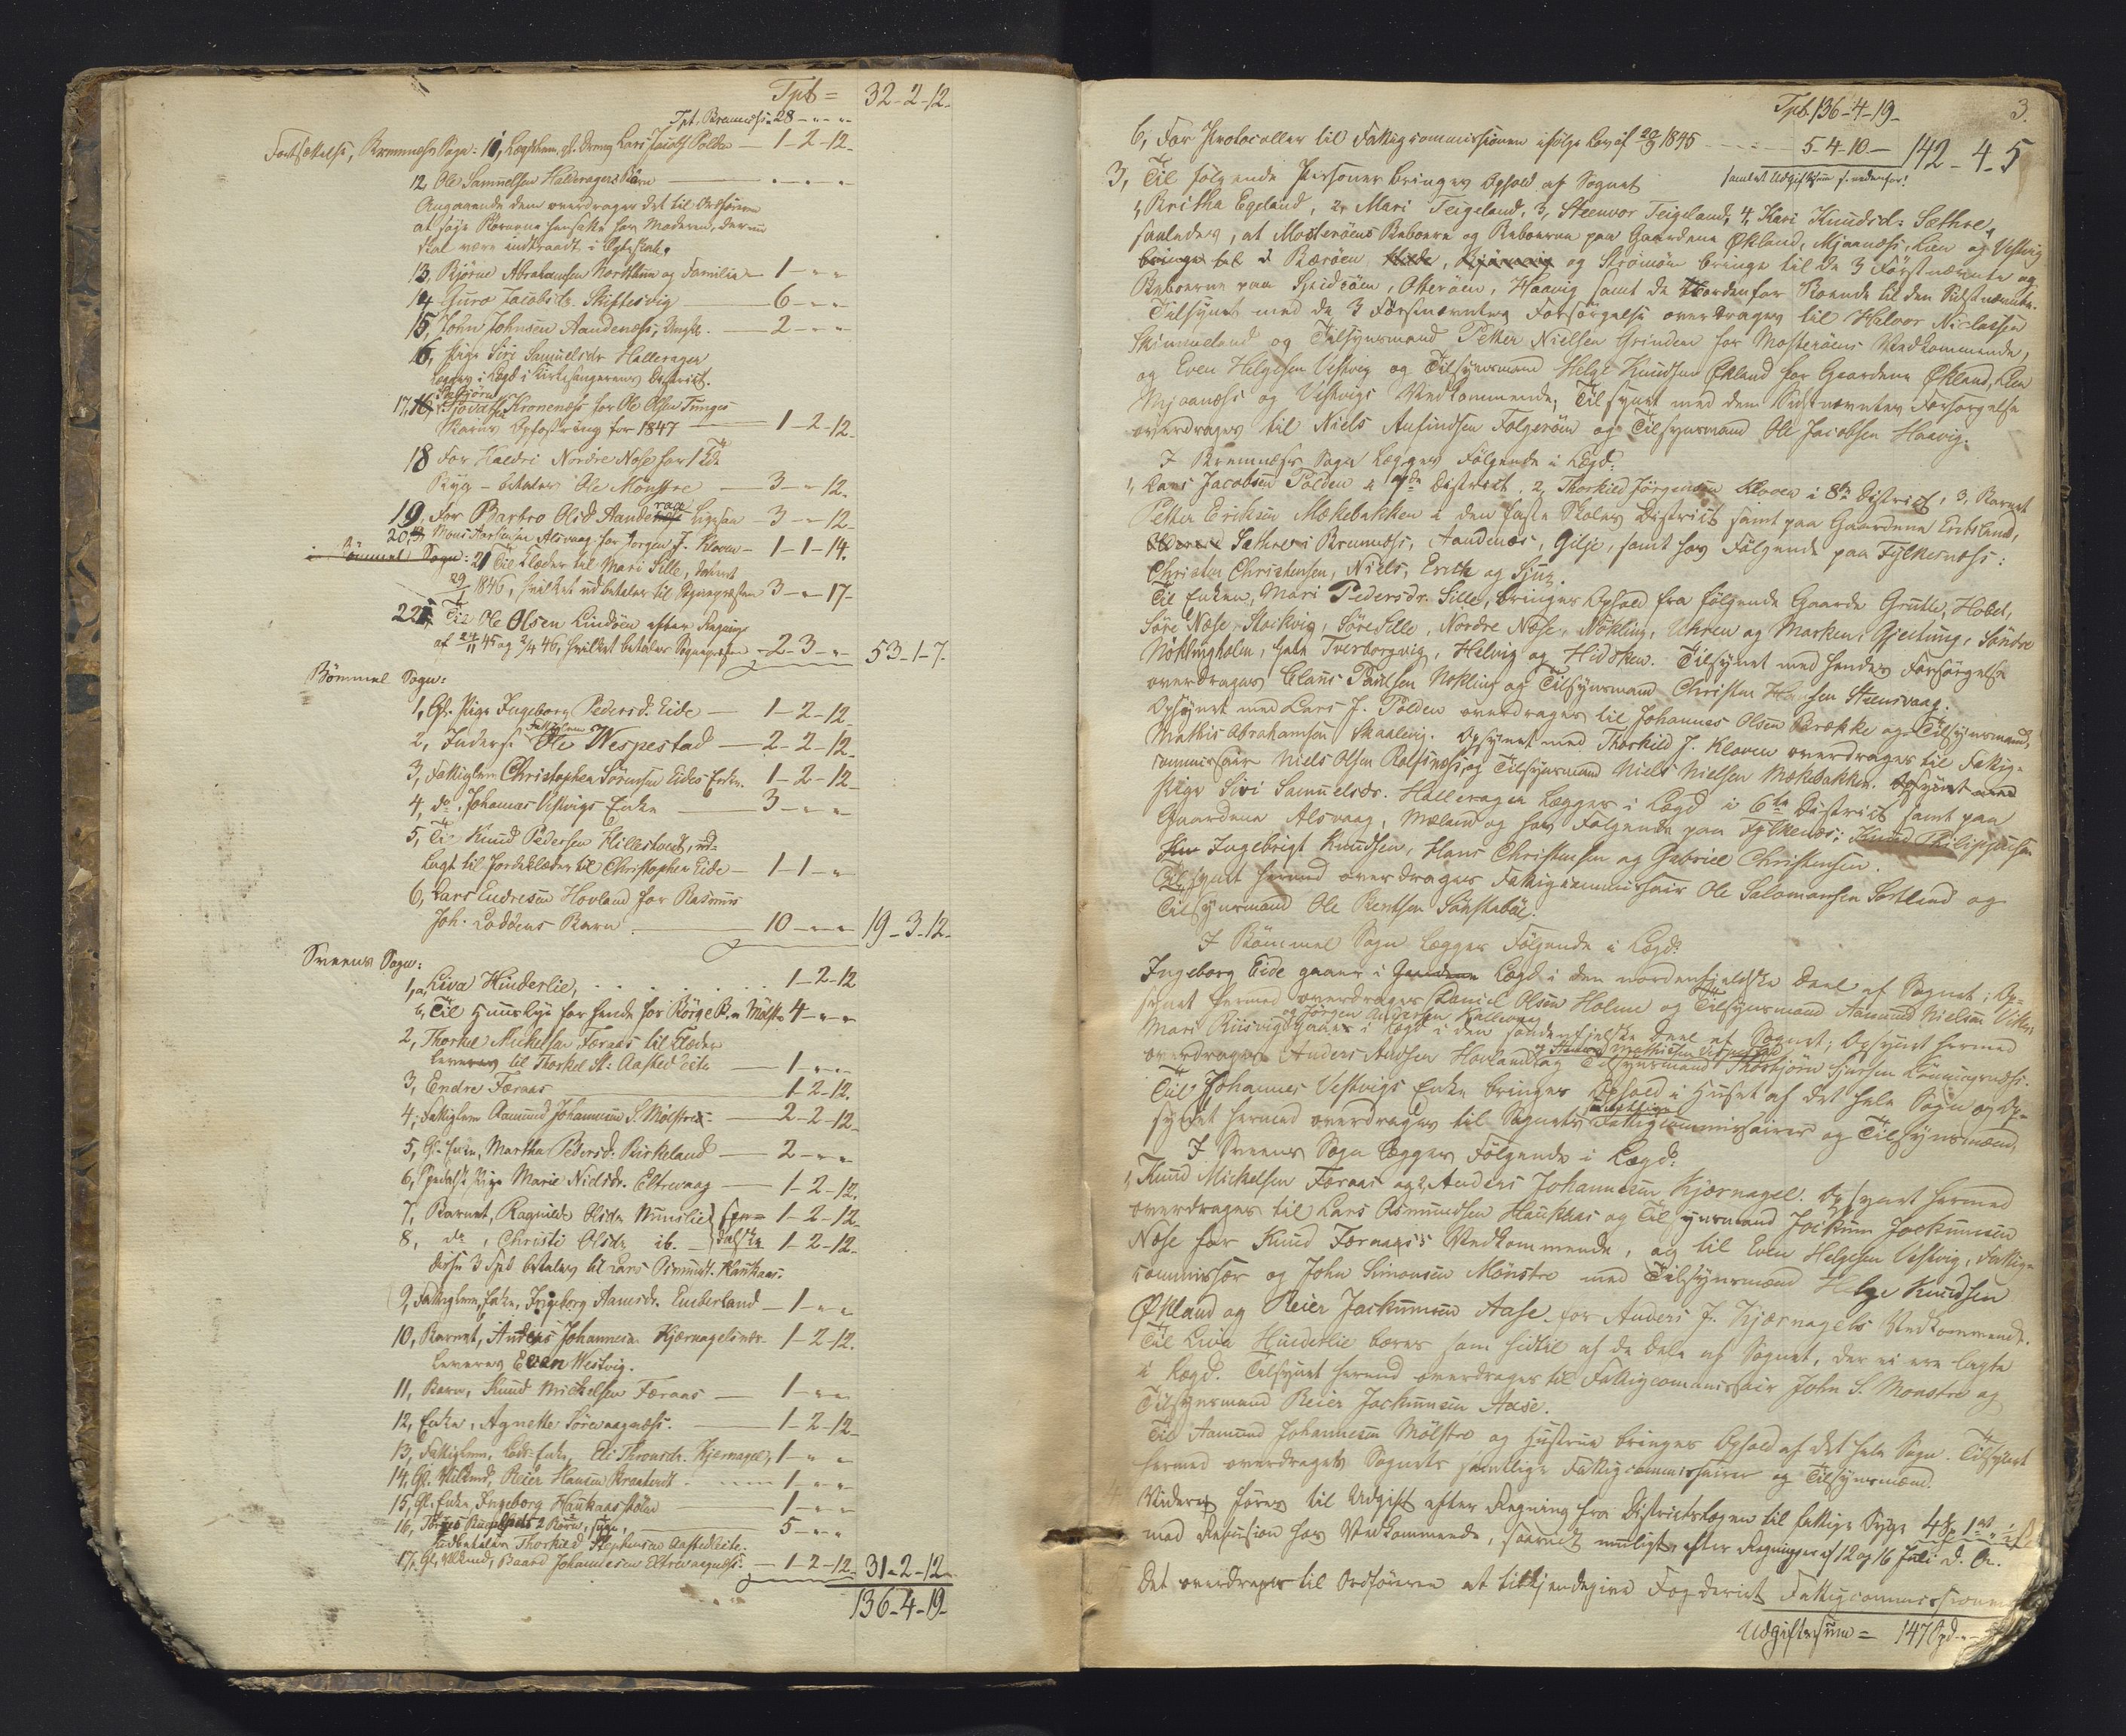 Tpt = 32-2-12.
Tpt. Bremnæs: 28 - " - "
Fortsættelse, Bremnæs Sogn: 11, Lægdslem, gl. Dreng Lars Jacobs. Polden — 1-2-12.
12, Ole Samuelsen Halderagers Børn — " - " - "
Angaaende dem overdrages det til Ordføreren
at søge Børnene hensatte hos Moderen, der nu
skal være indtraadt i Ægteskab.
13, Bjørne Abrahamsen Nordthun og Familie — 1 - " - "
14, Guro Jacobsdr. Skiftesvig — 6 - " - "
15, John Johnsen Aandenæss, — 2 - " - "
16, Pige Siri Samuelsdr Hallerager
lægges i Lægd i Kirkesangerens District.
17, Torbjørn Kronenæss for Ole Olsen Tunges
Barns Opfostring for 1847 — 1-2-12.
18 For Haldri Nordre Næse for 1 Tde
Byg - betales Ole Mønstre — 3 - " - 12.
19, For Barbro Olsd. Aanderage Ligesaa — 3 - " - 12.
20, Mons Alsvaag for Jørgen J. Kloven — 1-1-14.
Bømmel Sogn: 21 Til Klæder til Mari Sille,
29/1 1846, hvilket udbetales til Sognepræsten 3 - " - 17-
22, Til Ole Olsen Lindøen efter Regning
af 24/11 45 og 2/4 46, hvilket betales Sognepræsten - 2-3 - " 53-1-7.
Bømmel Sogn:
1, Gl. Pige Ingeborg Pedersd. Eide — 1-2-12
2, Inders. Fattiglem Ole Wespestad — 2-2-12
3, Fattiglem Christopher Sørensen Eides Enke. 1-2-12
4, do. Johannes Vestvigs Enke — 3 - " - "
5, Til Knud Pedersen Hillestvedt, ud-
lagt til Jordeklæder til Christopher Eide — 1-1 - "
6, Lars Endresen Hovland for Rasmus
Joh. Loddøens Barn — 10 - " - " 19-3-12.
Sveens Sogn:
1, a, Liva Hinderlie, 1-2-12
b, Til Huusleje for hende for Børge B. Mølst. 4 - " - "
2, Thorkel Mickelsen Færaas til Klæder
leveres til Thorkel St: Aasheldeite — 1 - " - "
3, Endre Færaas — 1-2-12.
4, Fattiglem Aamund Johannesen S. Mølstre — 2-2-12
5, Gl. Enke, Martha Pedersd. Birkeland — 2 - " - "
6, Spedalsk Pige Marie Nielsdr. Eltrevaag — 1-2-12.
7, Barnet, Ragnilde Olsdr. Nunslie } spe= 1-2-12
8, do, Christi Olsdr. ib. } dalske 1-2-12.
disse 3 Spd betales til Lars Osmunds. Haukaas.
9, Fattiglem, Enke, Ingeborg Aamsdr. Emberland — 1 - " - "
10, Barnet, Anders Johannesen Kjærnagelsnæs 1-2-12.
leveres Even Westvig.
11, Barn, Knud Mickelsen Færaas — 1 - " - "
12, Enke, Agnethe Sørevaagnæss. — 1-2-12
13, Fattiglem, Løds-Enke, Eli Thronsdr. Kjernagel, 1 - " - "
14, Gl. Reier Hansen — 1 - " - "
15, Gl. Enke, Ingeborg Haukaasstølen — 1 - " - "
16, 2 Børn, — 5 - " - "
udbetales Thorkild Stephensen Aasheldeite.
17, Gl. Baard Johannesen Eltrevaagnæss. — 1-2-12. 31-2-12
136-4-19-
3.
Tpt. 136-4-19-
6, For Protocoller til Fattigcommissionen ifølge Lov af 20/9 1845 5-4-10 — 142-4-5
samlet Udgiftssum s. nedenfor!
3, Til følgende Personer bringes Ophold af Sognet
1, Britha Egeland, 2, Mari Teigeland, 3, Steenvor Teigeland, 4, Kari Knudsd. Sæthre,
saaledes, at Mosterøens Beboere og Beboerne paa Gaardene Økland, Mjaanæss, Lien og Vestvig
bringe til Bærøen, og Strømøen bringe til de 3 Førstnævnte og
Beboerne paa Spidsøen, Olterøen, Haavig samt de Nordenfor Boende til den Sidstnævnte.
Tilsynet med de 3 Førstnævntes Forsørgelse overdrages til Halvor Niclassen
Skimmeland og Tilsynsmand Petter Nielsen Grinden for Mosterøens Vedkommende,
og Even Helgesen Vestvig og Tilsynsmand Helge Knudsen Økland for Gaardene Økland, Lien
Mjaanæss og Vestvigs Vedkommende; Tilsynet med den Sidstnævntes Forsørgelse
overdrages til Niels Anfindsen Folgerøen og Tilsynsmand Ole Jacobsen Haavig.
I Bremnæss Sogn lægges Følgende i Lægd:
1, Lars Jacobsen Polden i 7de District, 2, Thorkild Jørgensen Kloven i 8de District, 3. Barnet
Petter Ericksen Mækebakken i den faste Skoles District samt paa Gaardene Eritsland,
Sæthre i Bremnæss, Aandenæs, Gilje, samt hos Følgende paa Fylkesnæss:
Christen Christensen, Niels, Erich og Sjur.
Til Enken, Mari Pedersdr. Sille, bringes Ophold fra følgende Gaarde Grutle, Hobel,
Søre Næse, Stockvig, Søre Sille, Nordre Næse, Nökling, Uhren og Marken, Gjeitung, Søndre
Nöklingholm, hele Tverborgvig, Helvig og Hidsken. Tilsynet med hendes Forsørgelse
overdrages Claus Paulsen Nokling og Tilsynsmand Christen Hansen Steensvaag.
Opsynet med Lars J. Polden overdrages til Johannes Olsen Brække og Tilsynsmand
Mathis Abrahamsen Skaalvig. Opsynet med Thorkild J. Kloven overdrages til Fattig-
commissair Niels Olsen Rolfsnæs, og Tilsynsmand Niels Nielsen Mækebakken. Opsynet med
Pige Siri Samuelsdr. Hallerager lægges i Lægd i 6te District samt paa
Gaardene Alsvaag, Mæland og hos Følgende paa Fylkesnæs: Knud Philippussen
Ingebrigt Knudsen, Hans Christensen og Gabriel Christensen.
Tilsynet hermed overdrages Fattigcommissair Ole Salamonsen Sortland og
Tilsynsmand Ole Bentsen Sønstabøe.
I Bömmel Sogn lægges Følgende i Lægd:
Ingeborg Eide gaaer i Gaardene Lægd i den nordenfjeldske Deel af Sognet; Op-
synet hermed overdrages Daniel Olsen Holme og Tilsynsmand Aamund Nielsen Vika
og Jørgen Andersen Kallevaag
Mari Riisvig gaaer i Lægd i den søndenfjelske Deel af Sognet; Opsynet hermed
overdrages Anders Hovland og Tilsynsmand Thorbjørn Sjursen Lønningnæss.
og Mathiesen Vespestad
Til Johannes Vestvigs Enke bringes Ophold i Huset af det hele Sogn og Op-
synet hermed overdrages til Sognets samtlige Fattigcommissairer og Tilsynsmænd,
I Sveens Sogn lægges Følgende i Lægd:
1, Knud Mickelsen Færaas og 2, Anders Johannesen Kjærnagel. Opsynet hermed
overdrages til Lars Osmundsen Haukaas og Tilsynsmand Jockum Jockumsen
Næse for Knud Færaas's Vedkommende, og til Even Helgesen Vestvig, Fattig-
commissær og John Simonsen Mönstre med Tilsynsmænd Helge Knudsen
Økland og Reier Jockumsen Aase for Anders J. Kjærnagels Vedkommende.
Til Liva Hinderlie bæres som hidtil af de Dele af Sognet, der ei ere lagte
i Lægd. Tilsynet hermed overdrages til Fattigcommissair John S. Monstre og
Tilsynsmand Reier Jockumsen Aase.
Til Aamund Johannesen Mölstre og Hustrue bringes Ophold af det hele Sogn. Tilsynet
hermed overdrages Sognets samtlige Fattigcommissairer og Tilsynsmænd.
Videre føres til Udgift efter Regning fra Districtslægen til fattige Syge 4 Sp 1 ort
mod Refusion hos Vedkommende, saavidt muligt, efter Regninger af 12 og 16 Juli d. A.
Det overdrages til Ordføreren at tilkjendegive Fogderiet Fattigcommissionens
Udgiftssum = 147 Spd